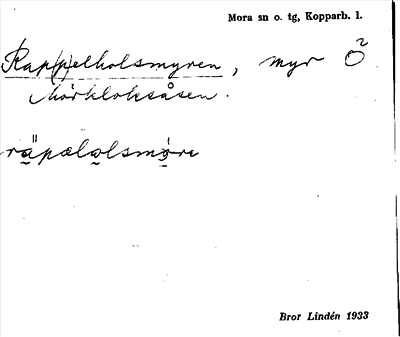 Mora sn o. tg, Kopparb. l.
Rap(p)elholsmyren, myr Ö
Mörkloksåsen.
Bror Lindén 1933